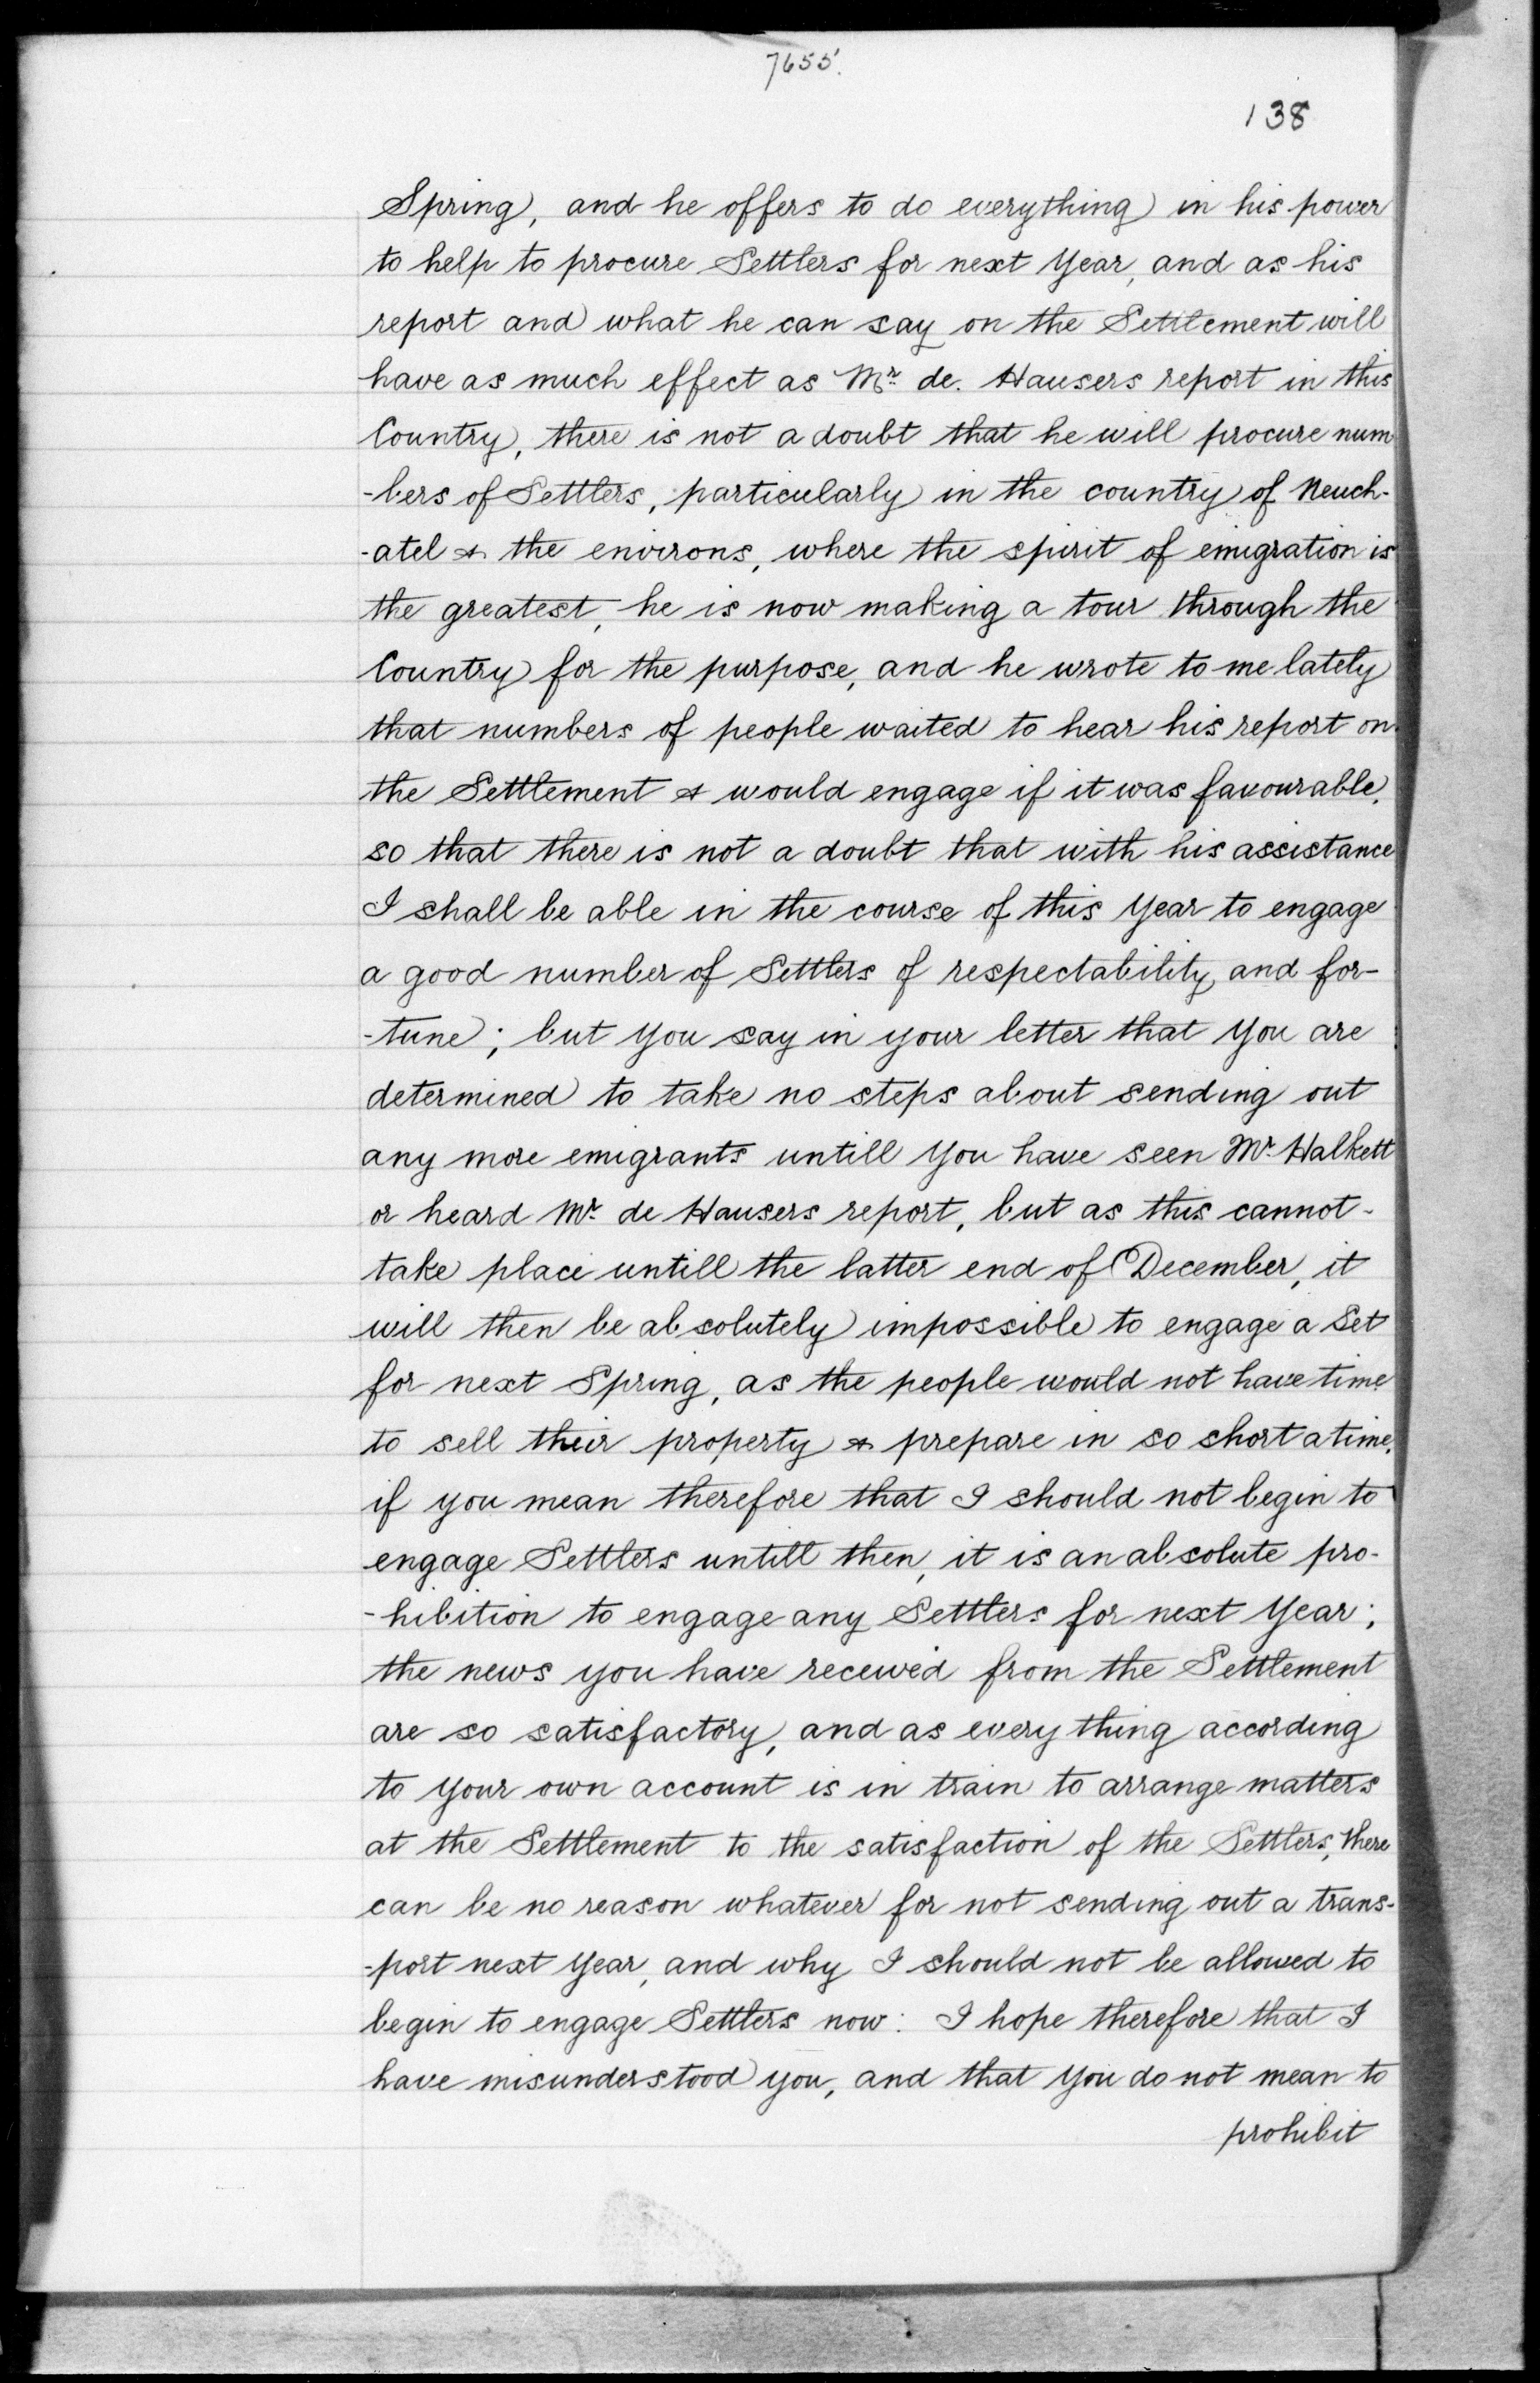 7655.
138
Spring, and he offers to do everything in his power
to help to procure Settlers for next Year, and as his
report and what he can say on the Settlement will
have as much effect as Mr. de. Hausers report in this
Country, there is not a doubt that he will procure num
-bers of Settlers, particularly in the country of Neuch-
-atel & the environs, where the spirit of emigration is
the greatest, he is now making a tour through the
Country for the purpose, and he wrote to me lately
that numbers of people waited to hear his report on
the Settlement & would engage if it was favourable,
so that there is not a doubt that with his assistance
I shall be able in the course of this Year to engage
a good number of Settlers of respectability and for-
-tune; but you say in your letter that you are
determined to take no steps about sending out
any more emigrants untill you have seen Mr. Halkett
or heard Mr. de Hausers report, but as this cannot-
take place untill the latter end of December, it
will then be absolutely impossible to engage a Set
for next Spring, as the people would not have time
to sell their property & prepare in so short a time,
if you mean therefore that I should not begin to
engage Settlers untill then, it is an absolute pro-
-hibition to engage any Settlers for next Year;
the news you have received from the Settlement
are so satisfactory, and as every thing according
to your own account is in train to arrange matters
at the Settlement to the satisfaction of the Settlers, there
can be no reason whatever for not sending out a trans-
-port next Year, and why I should not be allowed to
begin to engage Settlers now: I hope therefore that I
have misunderstood you, and that you do not mean to
prohibit